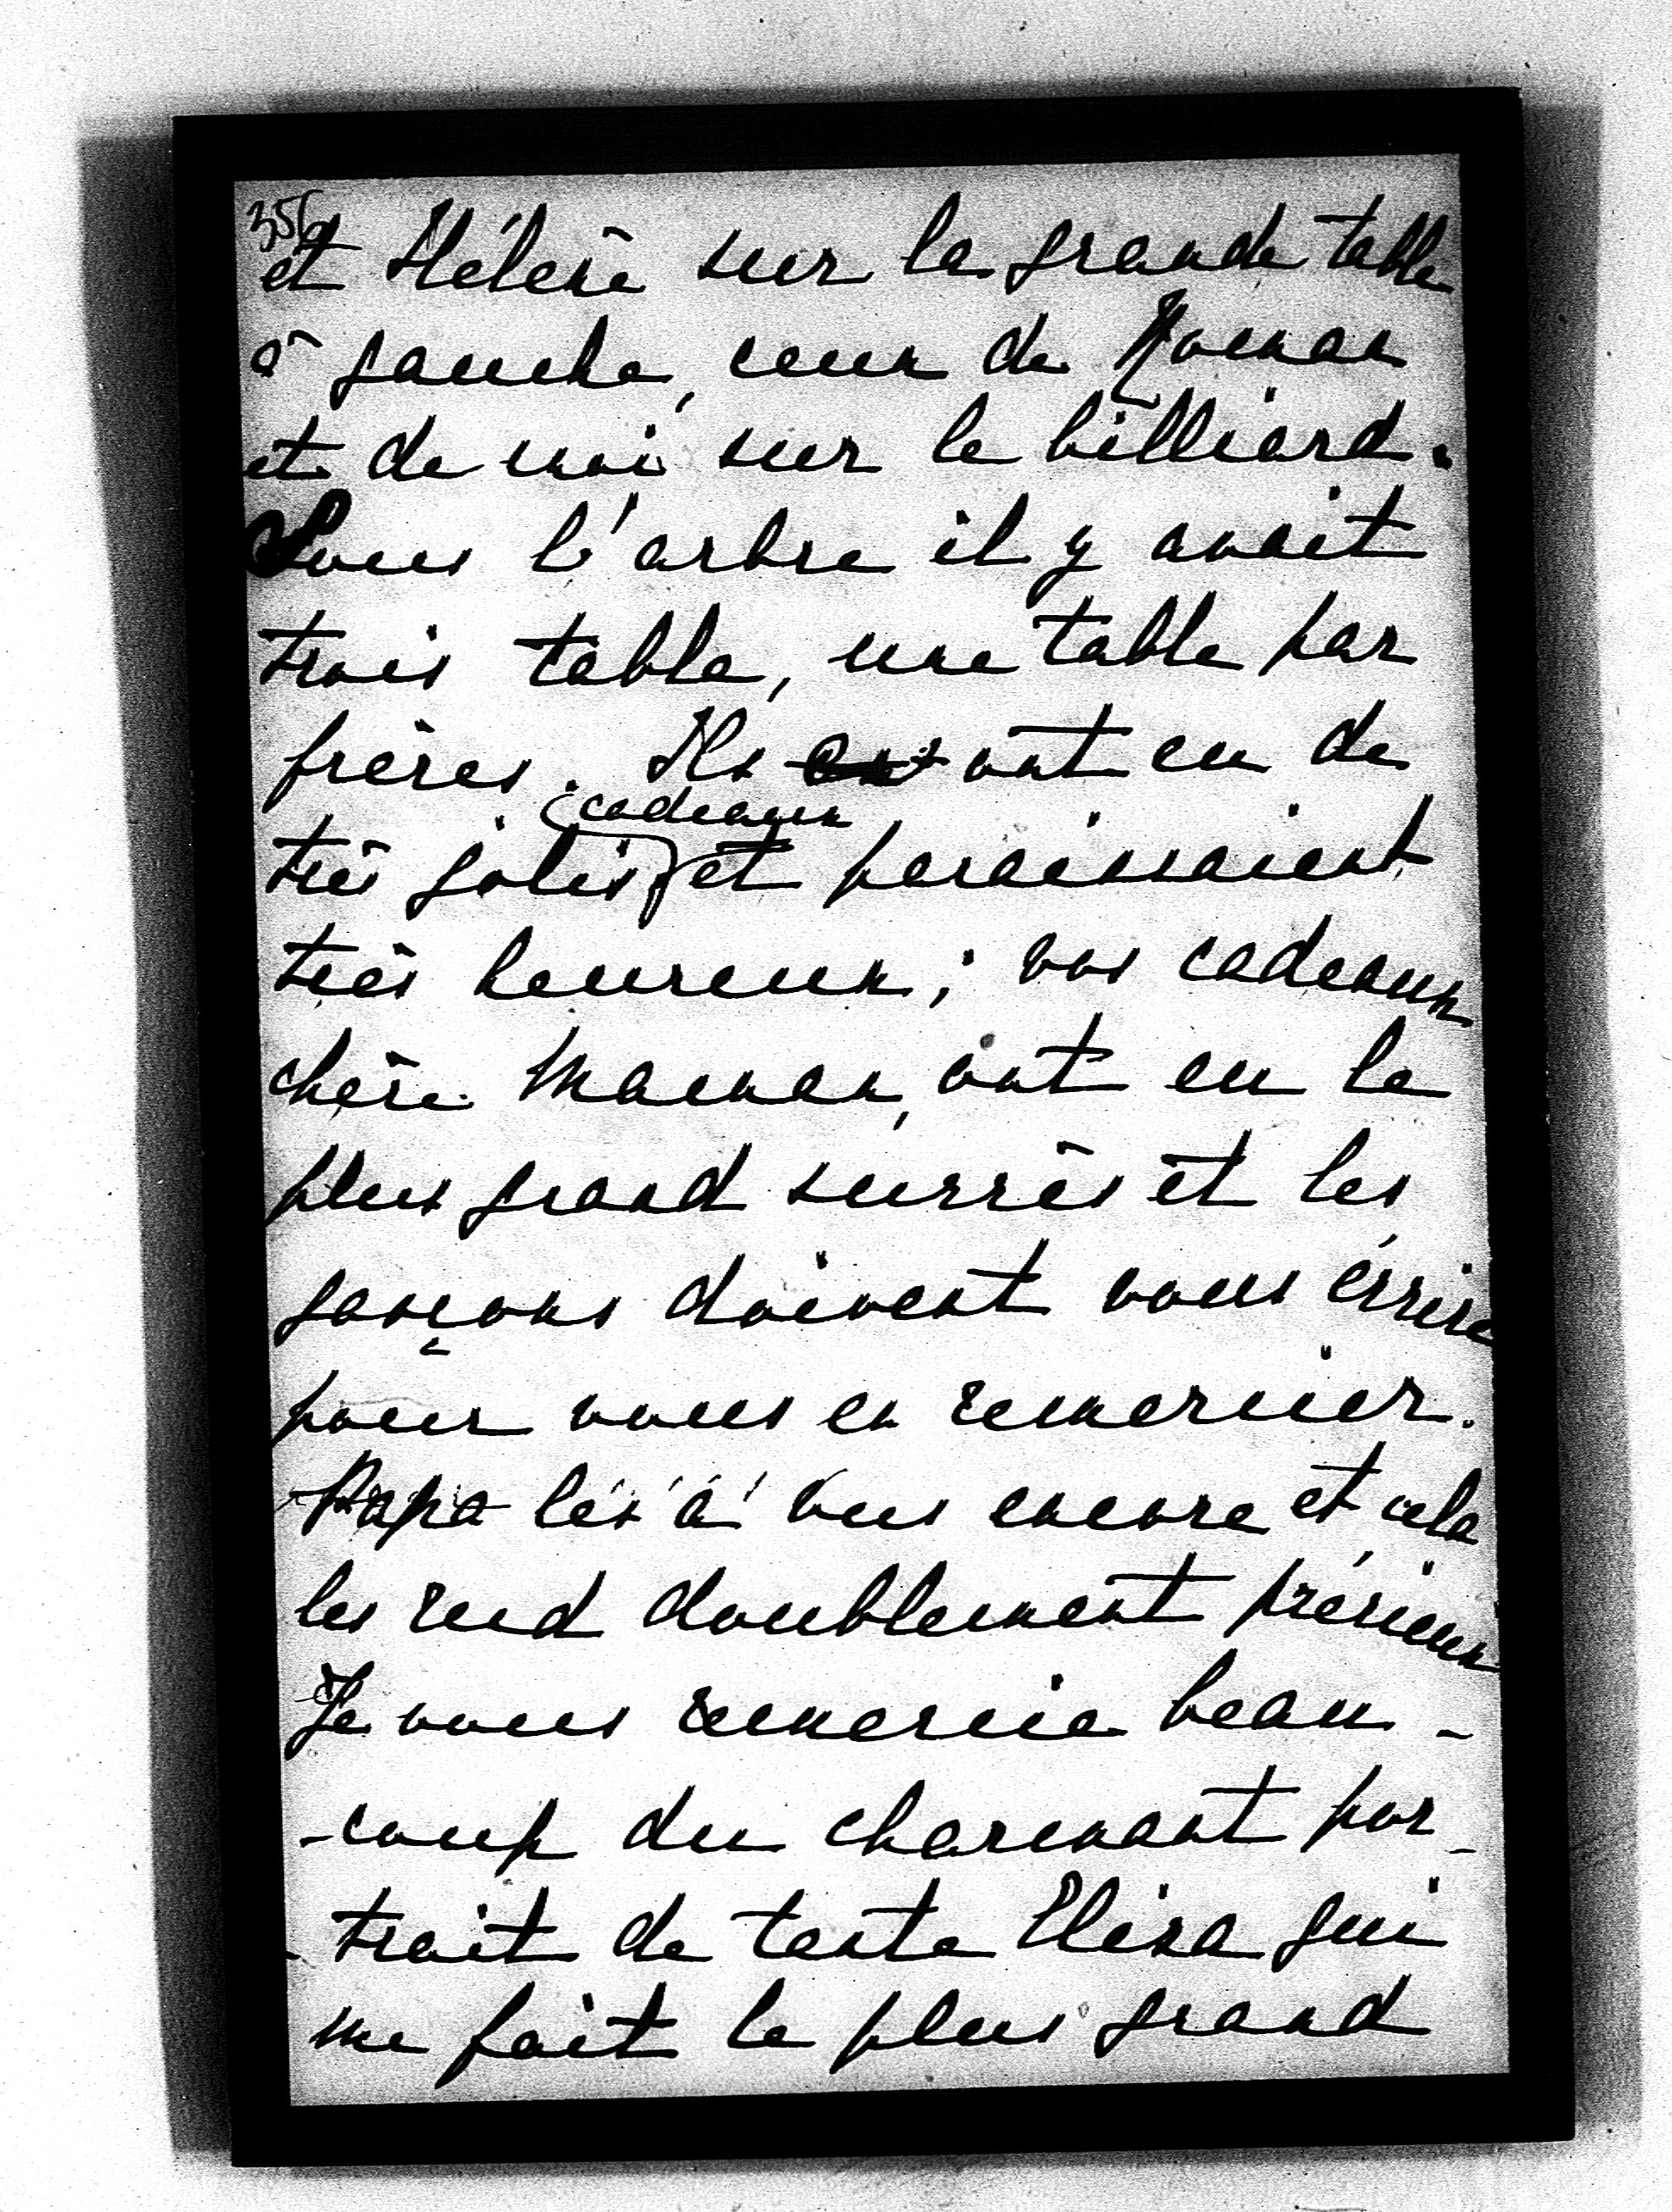 356
et Hélène sur la grande table
à gauche, ceux de Maman
et de moi sur le billiard.
Sous l'arbre il y avait
trois table, une table par
frères. Ils ont eu de
cadeaux
très jolis et paraissaient
très heureux; vos cadeaux
chère Maman, ont eu le
plus grand succès et les
garçons doivent vous écrire
pour vous en remercier.
Papa les a vus encore et cela
les rend doublement précieux
Je vous remercie beau-
-coup du charmant por-
-trait de tante Elisa qui
me fait le plus grand